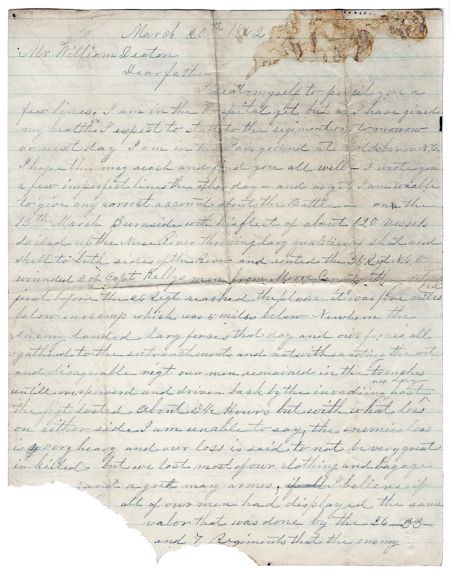 March 20th 1862
Mr William Deaton
Dear father
I seat myself to pencil you a
few lines, I am in the Hospital yet but as I have gined
my health I expect to start to the regiment on tomorrow
or next day I am in the Fairground at Goldsboro N.C.
I hope this may reach and find you all well - I wrote you
a few imperfect lines the other day - and as yet I am unable
to give any correct account about the Battle - on the
13th March Burnside with his fleet of about 120 vessels
dashed up the Nuse River throwing large quantities of shot and
shell to both sides of the River and routed the 35 Regt N.C.V.
wounded 2 of Capt Kellys men from Moore County
just before the 26 Regt reached the place it was five miles
below our camp which was 5 miles below Newbern the
enemy landed large forses that day and our forses all
gatherd to the entrenchments and notwithstanding the wet
and disagreable night our men remained in the trenches
untill overpowerd and driven back by the invading host
the fight lasted About 3½ Hours but with what loss
on either side I am unable to say, the enemies loss
is very heavy and our loss is said to not be very great
in killed but we lost most of our clothing and bagage
and a great many armes, I believe if
all of our men had displayed the same
valor that was done by the 26 - 33 -
and 7 Regiments that the enemy